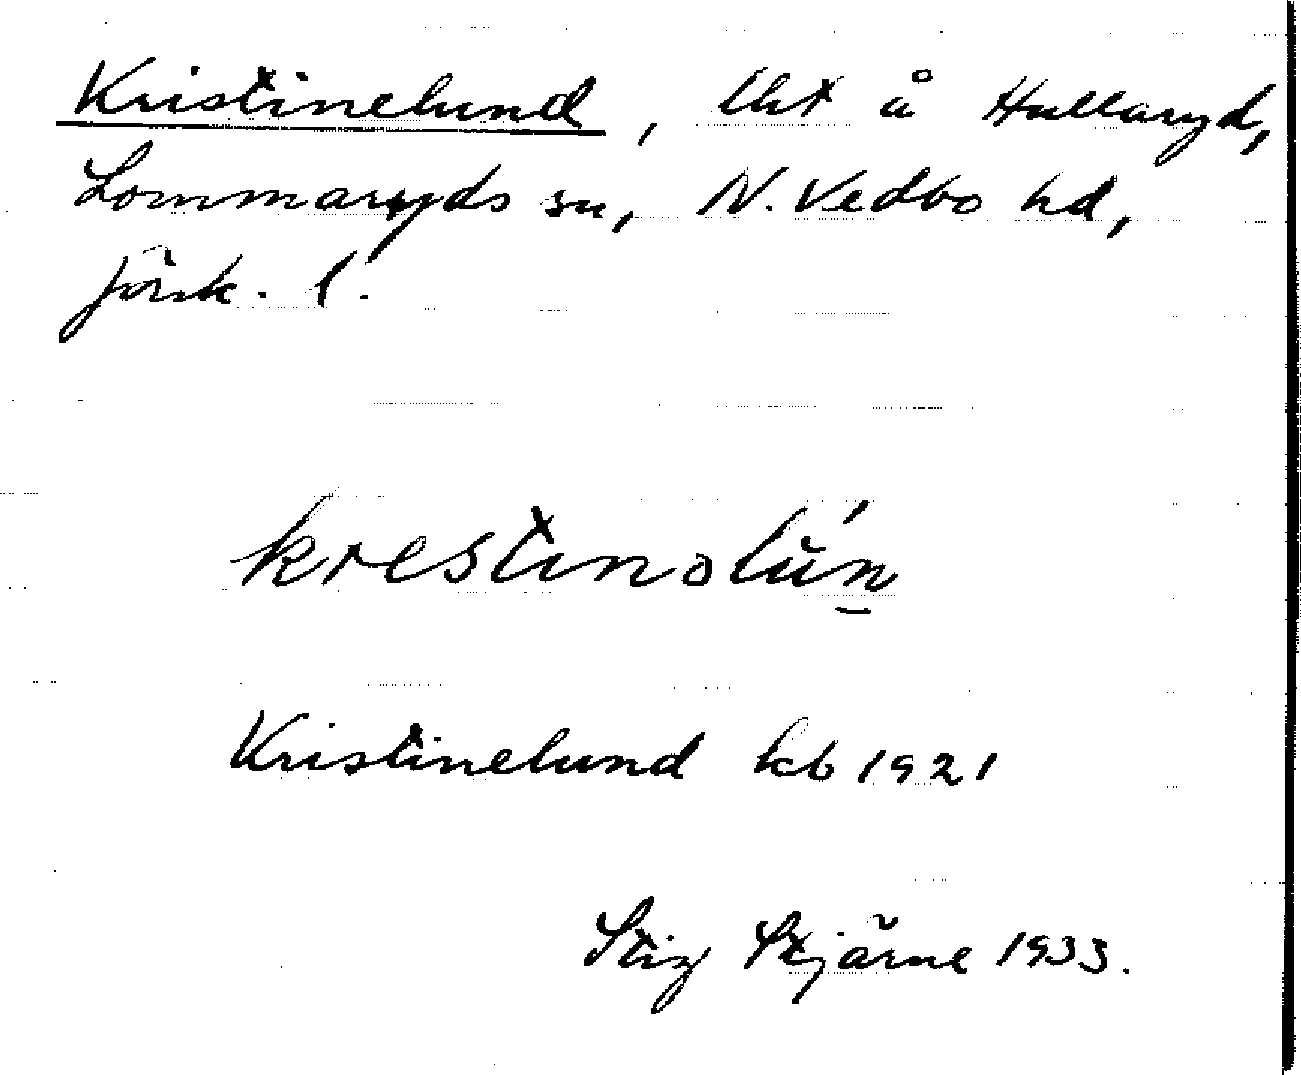 Kristinelund, lht å Hullaryd,
Lommaryds sn, N. Vedbo hd,
Jönk. l.
krestinəlún̠
Kristinelund kb 1921
Stig Stjärne 1933.